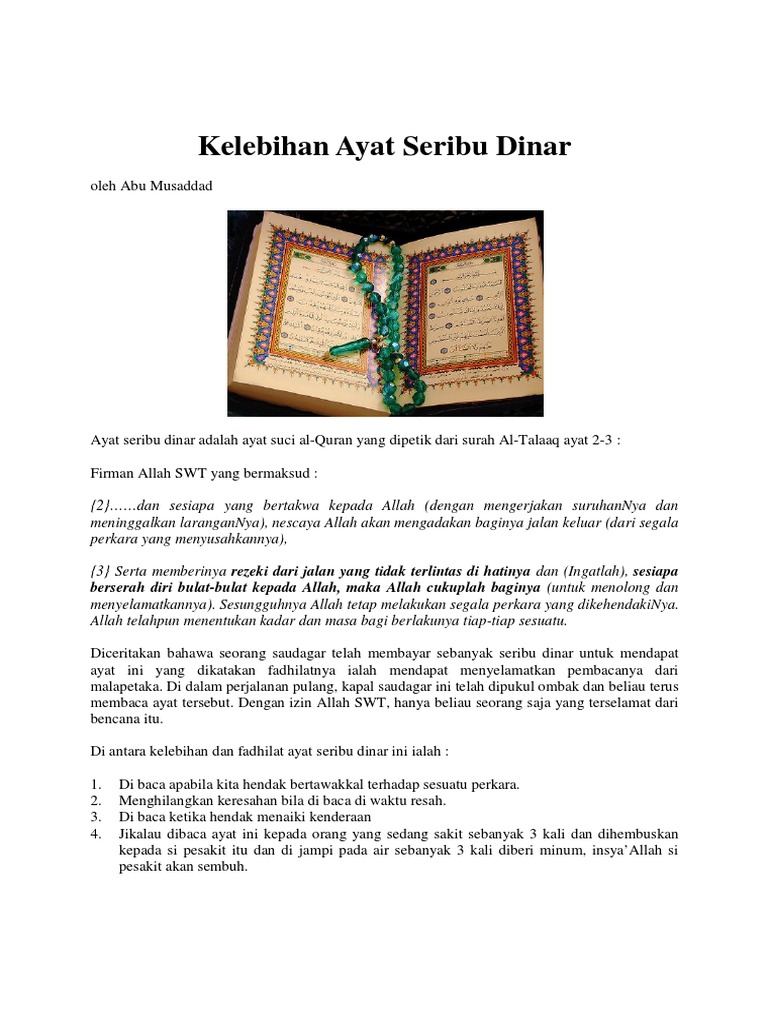 Kelebihan Ayat Seribu Dinar
oleh Abu Musaddad
Ayat seribu dinar adalah ayat suci al-Quran yang dipetik dari surah Al-Talaaq ayat 2-3 :
Firman Allah SWT yang bermaksud :
{2}……dan sesiapa yang bertakwa kepada Allah (dengan mengerjakan suruhanNya dan
meninggalkan laranganNya), nescaya Allah akan mengadakan baginya jalan keluar (dari segala
perkara yang menyusahkannya),
{3} Serta memberinya rezeki dari jalan yang tidak terlintas di hatinya dan (Ingatlah), sesiapa
berserah diri bulat-bulat kepada Allah, maka Allah cukuplah baginya (untuk menolong dan
menyelamatkannya). Sesungguhnya Allah tetap melakukan segala perkara yang dikehendakiNya.
Allah telahpun menentukan kadar dan masa bagi berlakunya tiap-tiap sesuatu.
Diceritakan bahawa seorang saudagar telah membayar sebanyak seribu dinar untuk mendapat
ayat ini yang dikatakan fadhilatnya ialah mendapat menyelamatkan pembacanya dari
malapetaka. Di dalam perjalanan pulang, kapal saudagar ini telah dipukul ombak dan beliau terus
membaca ayat tersebut. Dengan izin Allah SWT, hanya beliau seorang saja yang terselamat dari
bencana itu.
Di antara kelebihan dan fadhilat ayat seribu dinar ini ialah :
1. Di baca apabila kita hendak bertawakkal terhadap sesuatu perkara.
2. Menghilangkan keresahan bila di baca di waktu resah.
3. Di baca ketika hendak menaiki kenderaan
4. Jikalau dibaca ayat ini kepada orang yang sedang sakit sebanyak 3 kali dan dihembuskan
kepada si pesakit itu dan di jampi pada air sebanyak 3 kali diberi minum, insya’Allah si
pesakit akan sembuh.